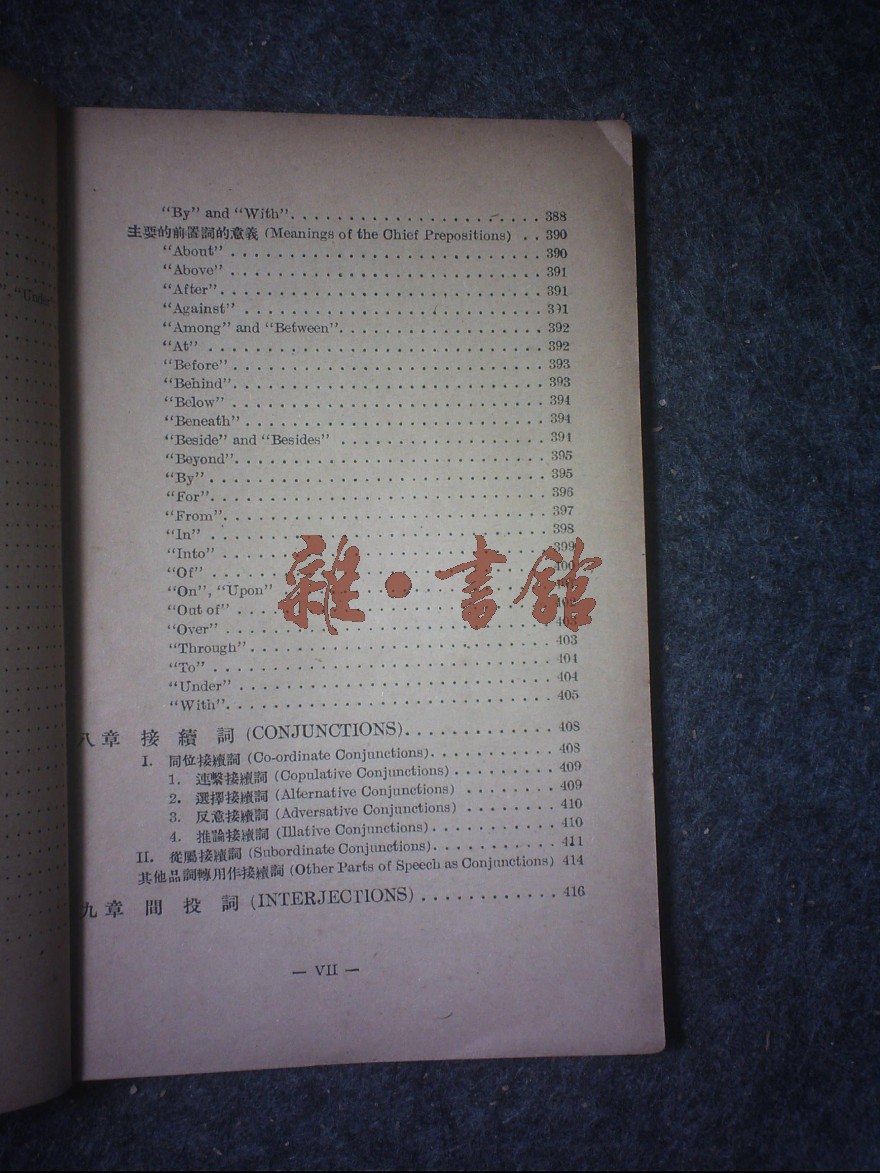 "Under"
"By" and "With" . . . . . . . . . . . . . . . . . . . . . . . 388
主要的前置詞的意義 (Meanings of the Chief Prepositions) . . 390
"About" . . . . . . . . . . . . . . . . . . . . . . . . . . . 390
"Above" . . . . . . . . . . . . . . . . . . . . . . . . . . . 391
"After" . . . . . . . . . . . . . . . . . . . . . . . . . . . 391
"Against" . . . . . . . . . . . . . . . . . . . . . . . . . . 391
"Among" and "Between" . . . . . . . . . . . . . . . . . . . . 392
"At" . . . . . . . . . . . . . . . . . . . . . . . . . . . . 392
"Before" . . . . . . . . . . . . . . . . . . . . . . . . . . 393
"Behind" . . . . . . . . . . . . . . . . . . . . . . . . . . 393
"Below" . . . . . . . . . . . . . . . . . . . . . . . . . . . 394
"Beneath" . . . . . . . . . . . . . . . . . . . . . . . . . . 394
"Beside" and "Besides" . . . . . . . . . . . . . . . . . . . 394
"Beyond" . . . . . . . . . . . . . . . . . . . . . . . . . . 395
"By" . . . . . . . . . . . . . . . . . . . . . . . . . . . . 395
"For" . . . . . . . . . . . . . . . . . . . . . . . . . . . . 396
"From" . . . . . . . . . . . . . . . . . . . . . . . . . . . 397
"In" . . . . . . . . . . . . . . . . . . . . . . . . . . . . 398
"Into" . . . . . . . . . . . . . . . . . . . . . . . . . . . 399
"Of" . . . . . . . . . . . . . . . . . . . . . . . . . . . . 400
"On", "Upon" . . . . . . . . . . . . . . . . . . . . . . . .
"Out of" . . . . . . . . . . . . . . . . . . . . . . . . . .
"Over" . . . . . . . . . . . . . . . . . . . . . . . . . . .
"Through" . . . . . . . . . . . . . . . . . . . . . . . . . . 403
"To" . . . . . . . . . . . . . . . . . . . . . . . . . . . . 404
"Under" . . . . . . . . . . . . . . . . . . . . . . . . . . . 404
"With" . . . . . . . . . . . . . . . . . . . . . . . . . . . 405
八章 接續詞 (CONJUNCTIONS) . . . . . . . . . . . . . . . 408
I. 同位接續詞 (Co-ordinate Conjunctions) . . . . . . . . . . . 408
1. 連繫接續詞 (Copulative Conjunctions) . . . . . . . . . 409
2. 選擇接續詞 (Alternative Conjunctions) . . . . . . . . 409
3. 反意接續詞 (Adversative Conjunctions) . . . . . . . . 410
4. 推論接續詞 (Illative Conjunctions) . . . . . . . . . . . 410
II. 從屬接續詞 (Subordinate Conjunctions) . . . . . . . . . . . 411
其他品詞轉用作接續詞 (Other Parts of Speech as Conjunctions) 414
九章 間投詞 (INTERJECTIONS) . . . . . . . . . . . . 416
— VII —
雜·書館